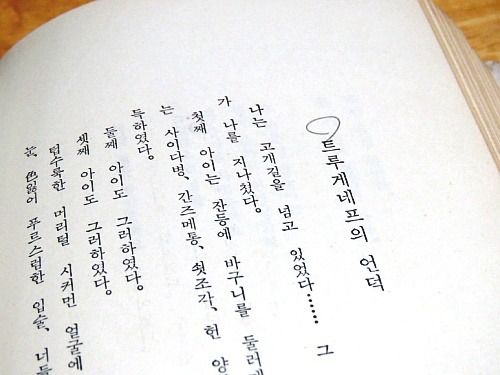 트루게네프의 언덕
나는 고개길을 넘고 있었다…… 그
가 나를 지나쳤다.
첫째 아이는 잔등에 바구니를 둘러메
는 사이다병, 간즈메통, 쇳조각, 헌 양
득하였다.
둘째 아이도 그러하였다.
셋째 아이도 그러하있다.
텁수룩한 머리털 시커먼 얼굴에
눈, 色잃어 푸르스럼한 입술, 너들